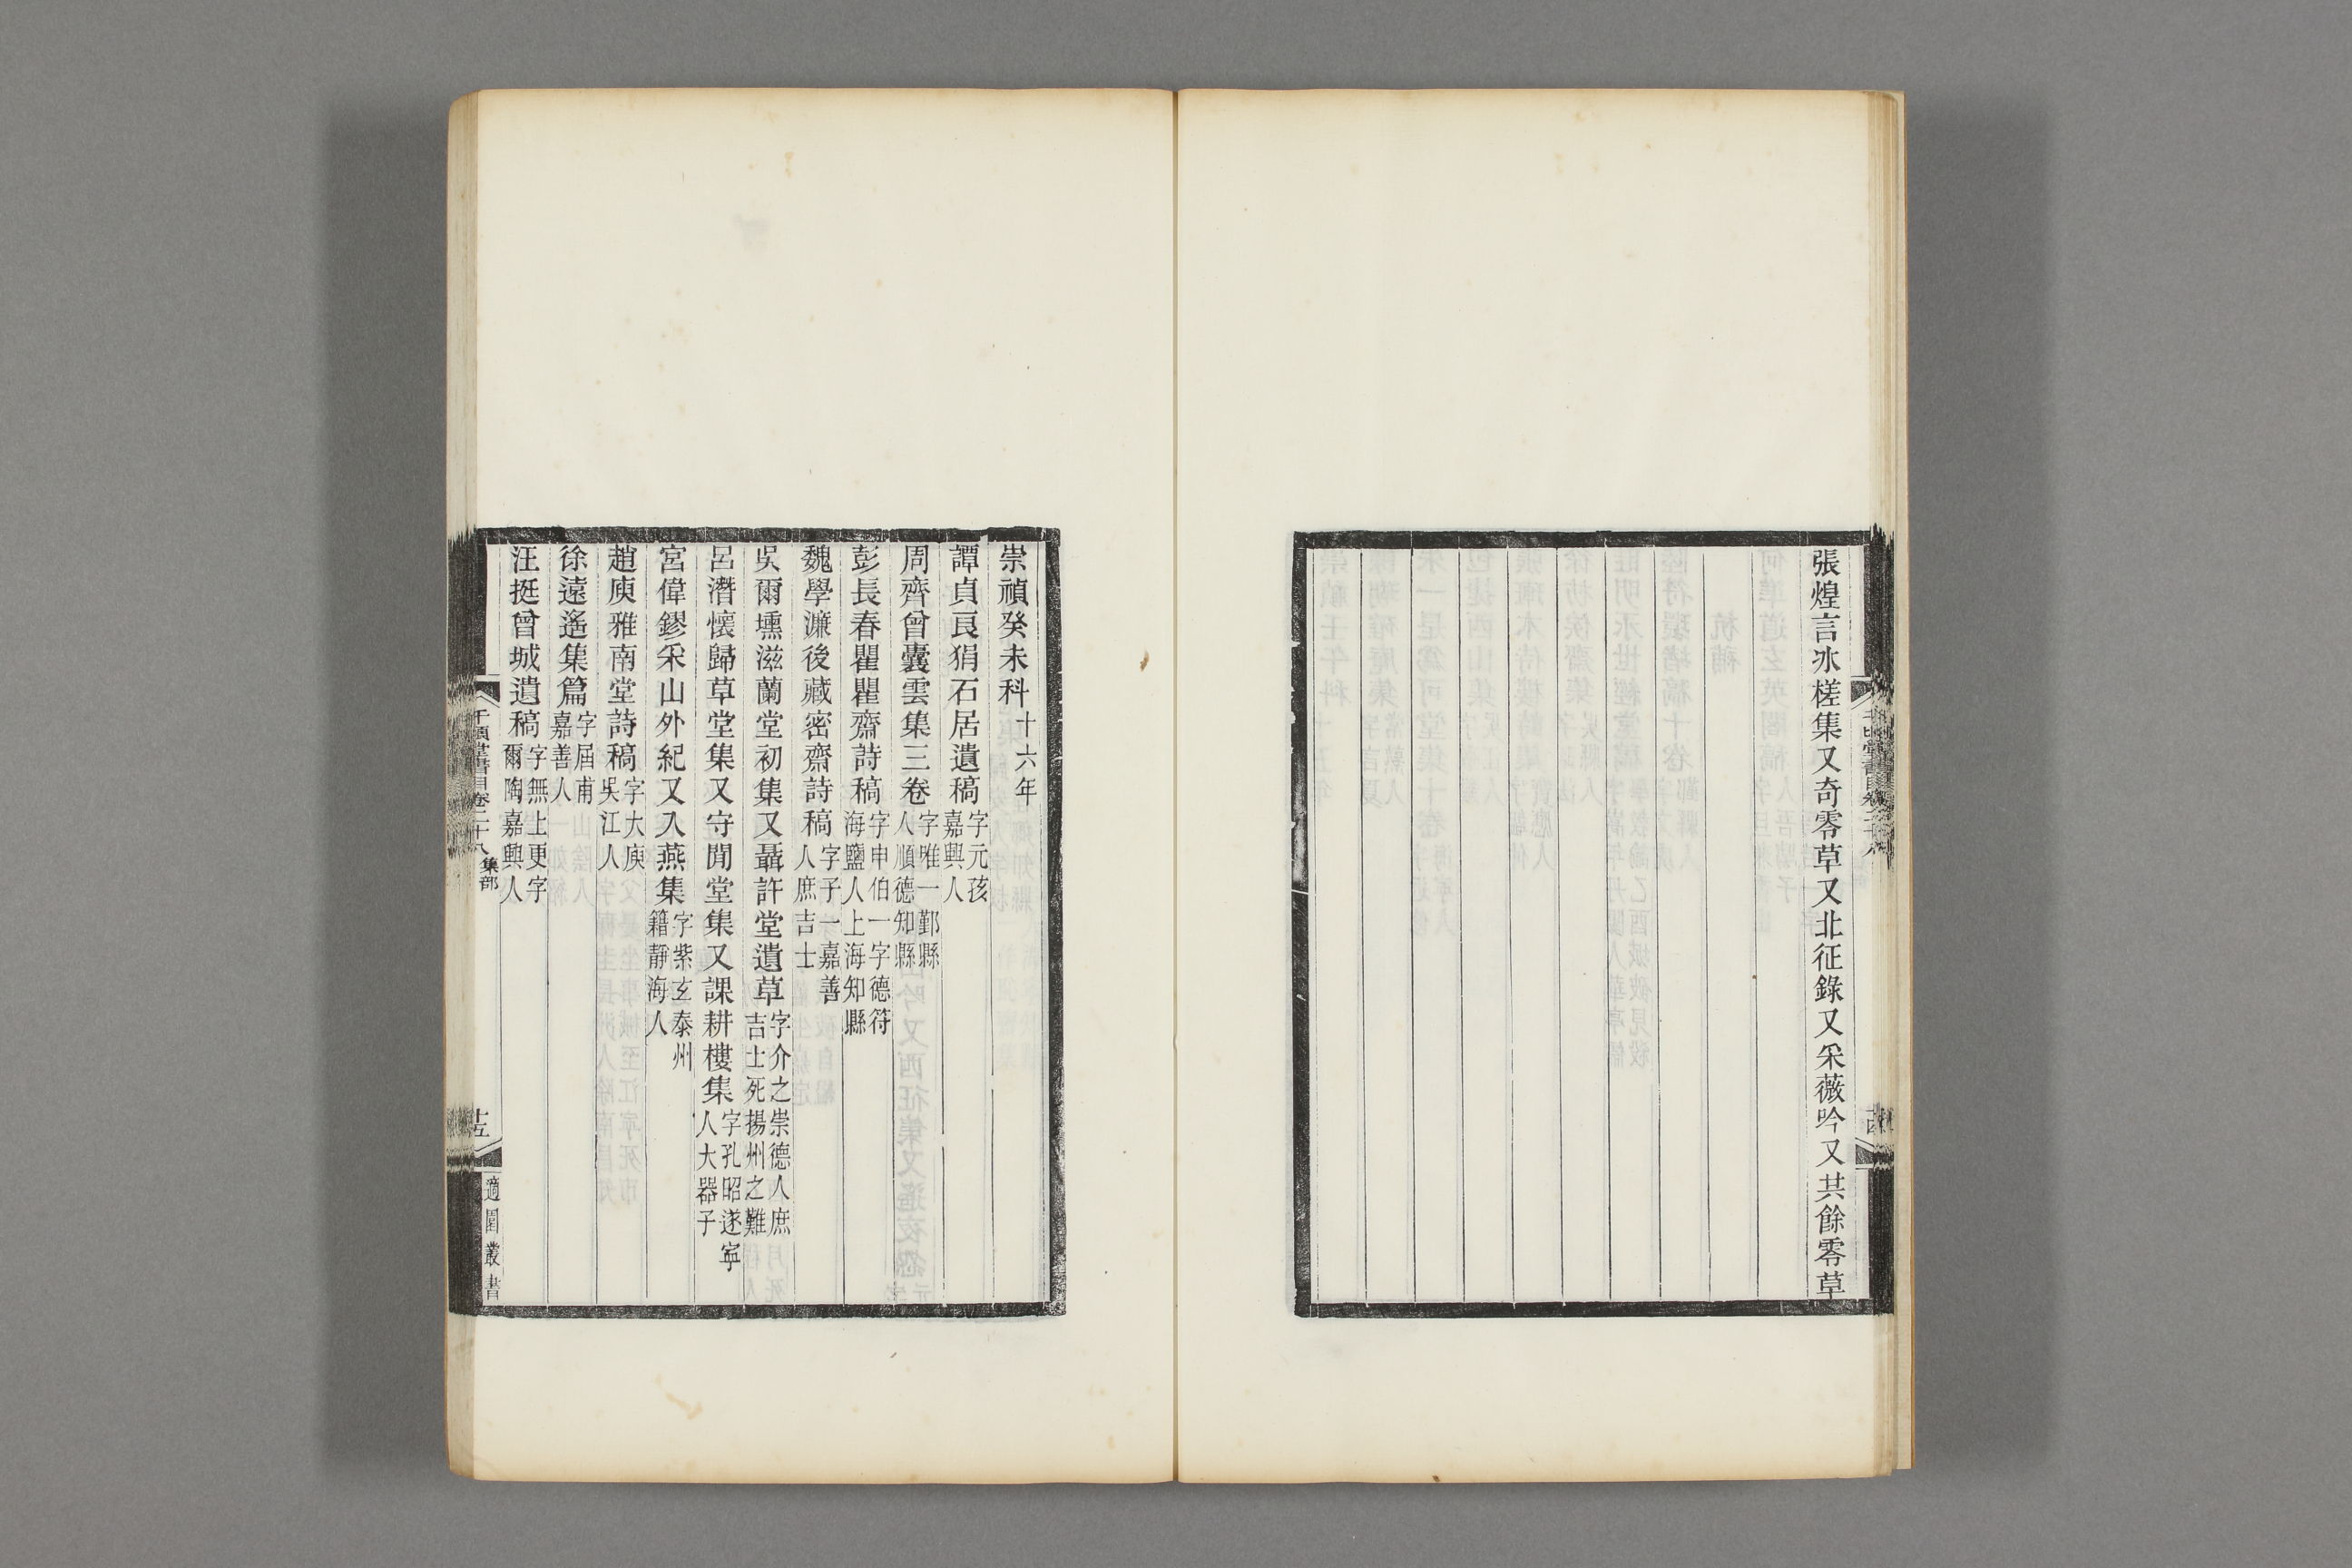 張煌言冰槎集又奇零草又北征錄又采薇吟又共餘零草
崇禎癸未科十六年
譚貞良狷石居遺稿字元孩嘉興人
周齊曾囊雲集三卷字唯一鄞縣人順德知縣
彭長春瞿瞿齋詩稿字申伯一字德符海鹽人上海知縣
魏學濂後藏密齋詩稿字子一嘉善人庶吉士
吳爾壎滋蘭堂初集又聶許堂遺草字介之崇德人庶吉士死揚州之難
呂潛懷歸草堂集又守閒堂集又課耕樓集字孔昭遂寧人大器子
宮偉鏐采山外紀又入燕集字紫玄泰州籍靜海人
趙庾雅南堂詩稿字大庾吳江人
徐遠遙集篇字屆甫嘉善人
汪挺曾城遺稿字無上更字爾陶嘉興人
千頃堂書目卷二十八 集部
十五
適園叢書